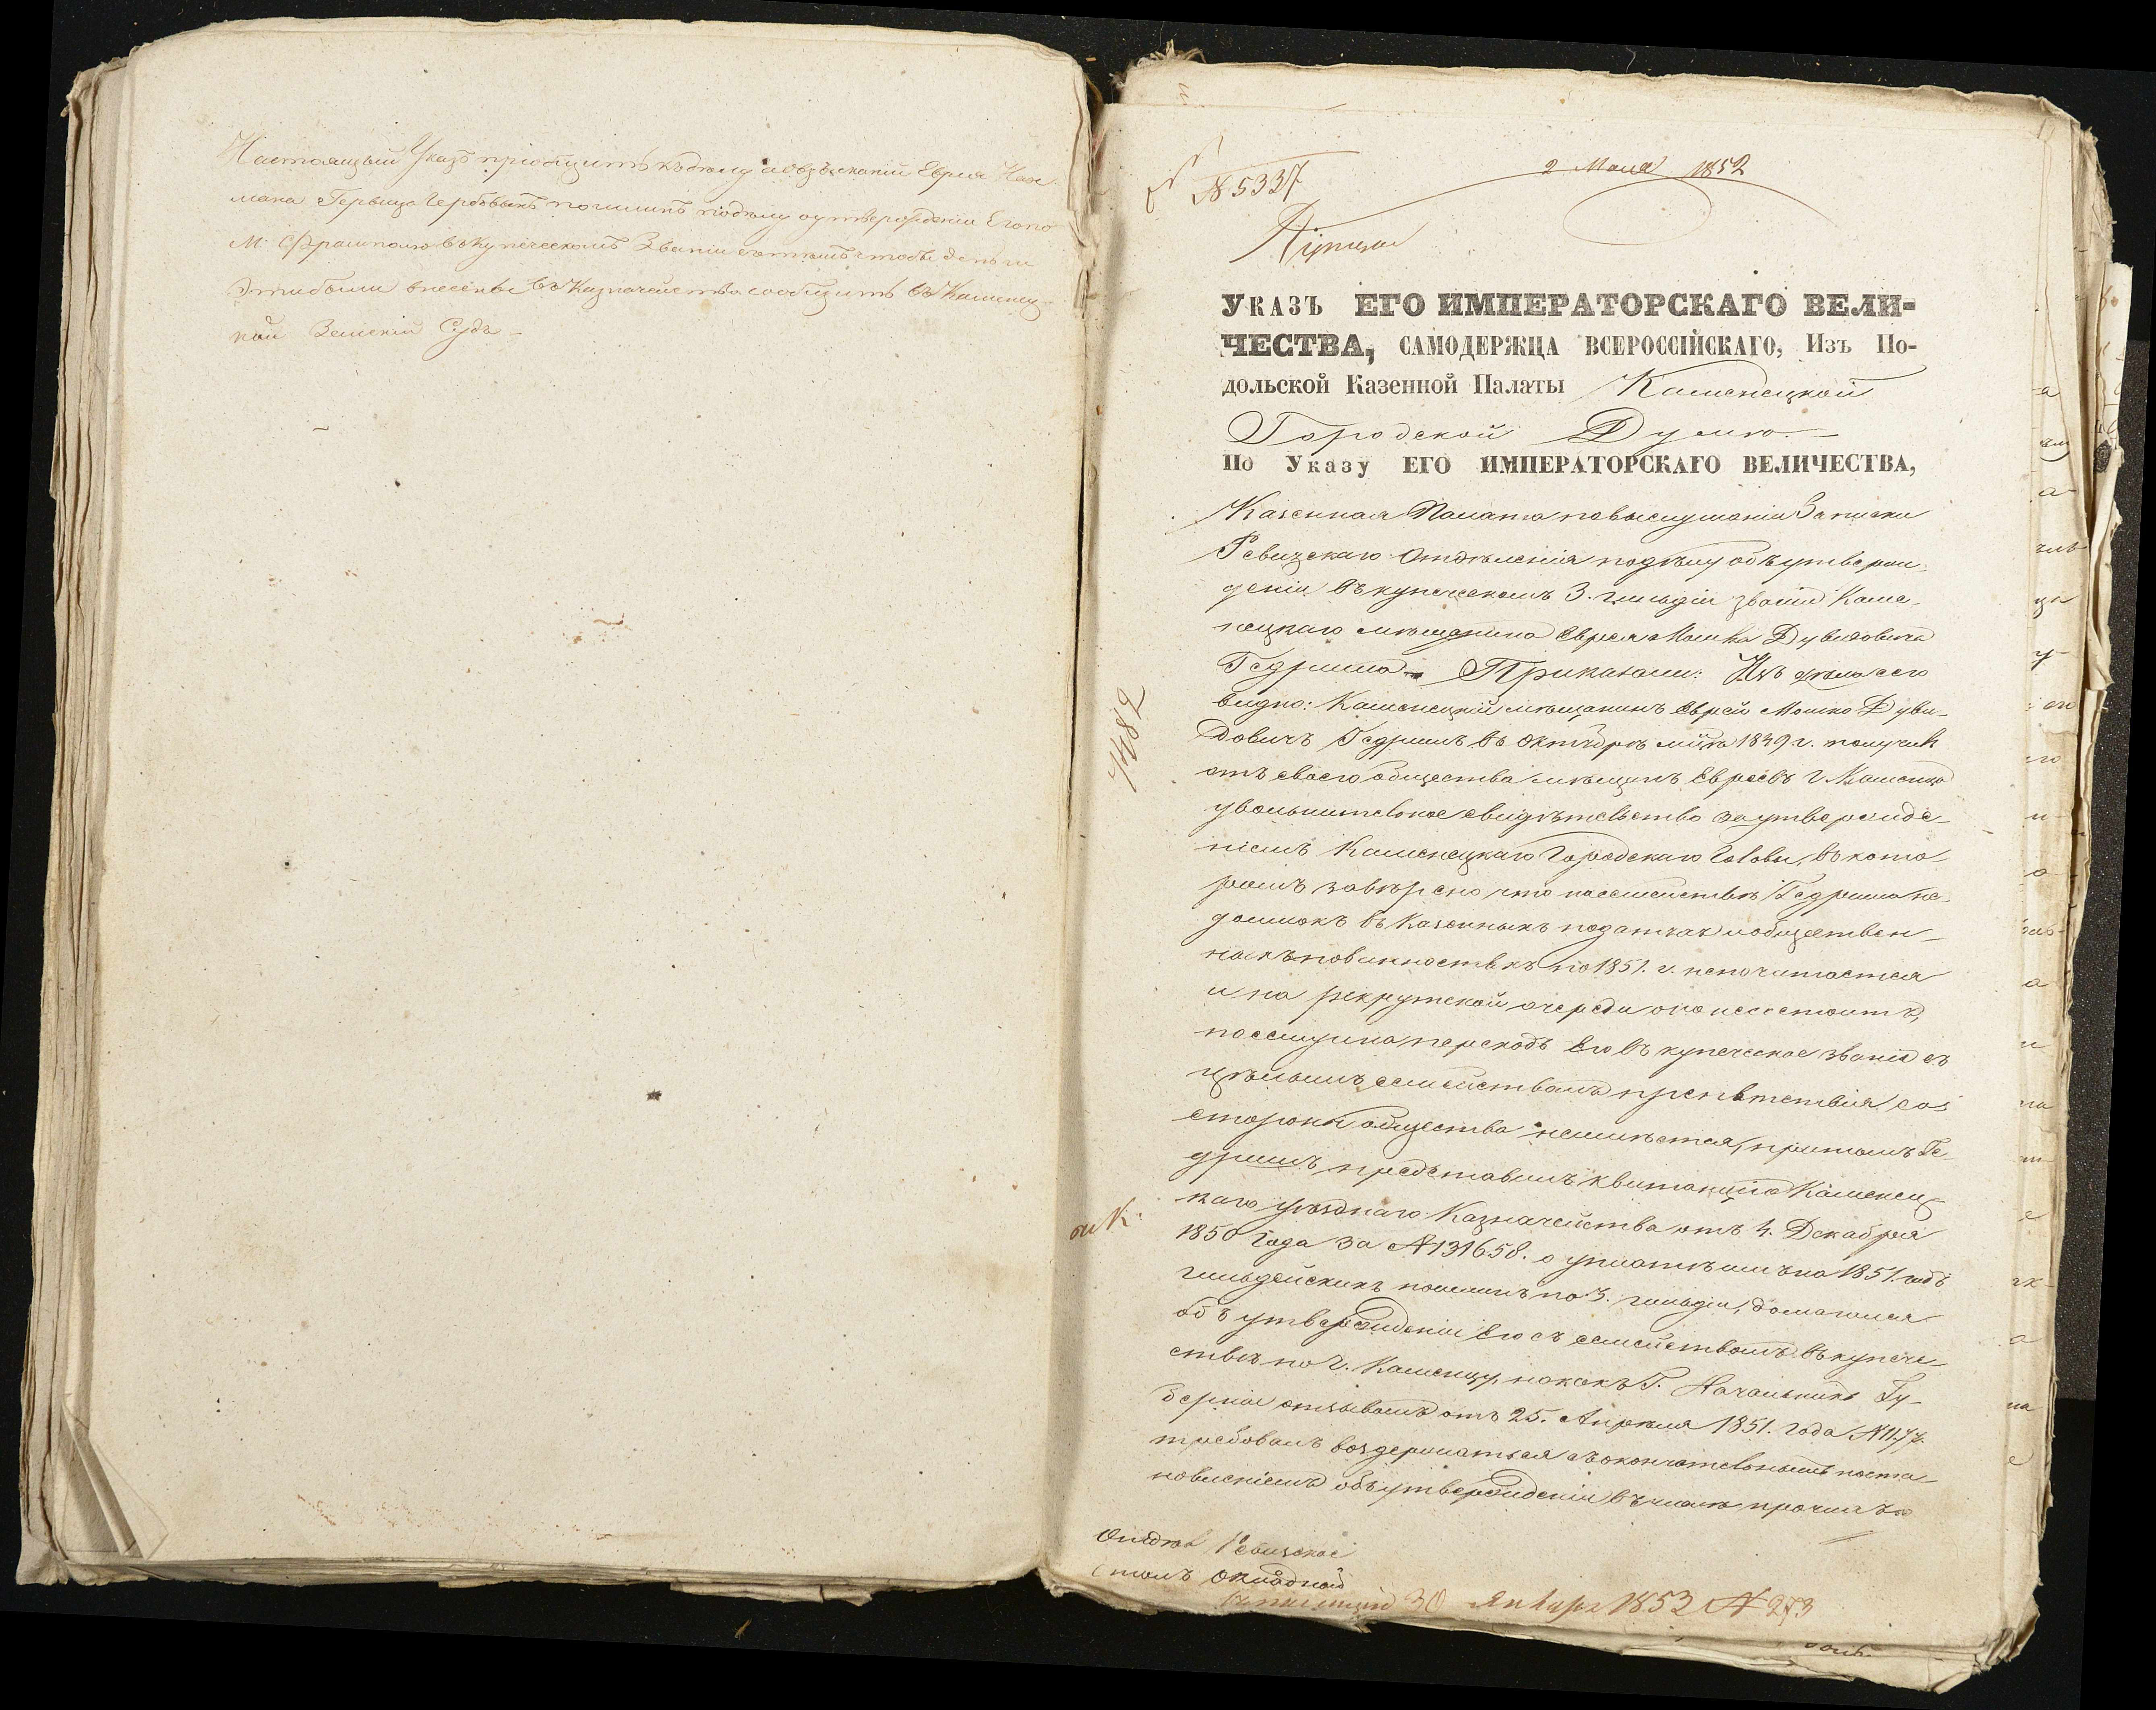 Настоящый Указъ пріобщить къ дѣлу о взысканіи Еврея
мана Гербовыхъ пошлинъ по дѣлу о утвержденіи Его по
М. Фрамполю в Купеческомъ Званіи съ тѣмъ чтобы деньги
Эти были внесены въ Казначейство сообщить въ Каменец-
кой Земскій Судъ
№ 5337
2 Мая 1852
Указъ ЕГО ИМПЕРАТОРСКАГО ВЕЛИ-
ЧЕСТВА, САМОДЕРЖЦА ВСЕРОССІЙСКАГО, Изъ По-
дольской Казенной Палаты Каменецкой
Городской Думѣ.
По Указу ЕГО ИМПЕРАТОРСКАГО ВЕЛИЧЕСТВА,
Казенная Палата по выслушаніи Записки
Ревизскаго Отдѣленія по дѣлу объ утверж-
деніи въ купеческомъ 3. гильдіи званіи Каме-
нецкаго мѣщанина Еврея Мошка Дувидовича
Гедриша. Приказали: Изъ дѣла сего
видно: Каменецкій мѣщанинъ Еврей Мошко Дуви-
довичъ Гедришъ въ Октябрѣ мцѣ 1849 г. получивъ
отъ своего общества мѣщанъ Евреевъ г. Каменца
увольнительное свидѣтельство за утвержде-
ніемъ Каменецкаго Городскаго Головы, въ кото-
ромъ завѣрено что на семействѣ Гедриша не-
доимокъ въ Казенныхъ податяхъ и обществен-
ныхъ повинностяхъ по 1851. г. не почитается
и на рекрутской очереди оно не состоитъ,
посему на переходъ Его въ купеческое званіе съ
цѣлымъ семействомъ препятствія со
стороны общества не имѣется, притомъ Ге-
дришъ представилъ квитанцію Каменец-
каго уѣзднаго Казначейства отъ 4. Декабря
1850 года за № 131658. о уплатѣ имъ на 1851. годъ
гильдейскихъ пошлинъ по 3. гильдіи, домагался
объ утвержденіи Его съ семействомъ въ купече-
ствѣ по г. Каменцу, но какъ Г. Начальникъ Гу-
берніи отзывомъ отъ 25. Апрѣля 1851. года №
требовалъ воздержаться съ окончательнымъ поста-
новленіемъ объ утвержденіи въ числѣ прочихъ
1482
Отдѣл Ревизское
Столъ Окладной
30 Января 1853 № 273